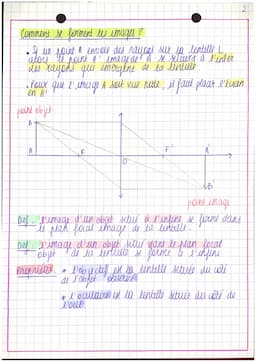 2
Comment se forment les images ?
• Si un point A envoie des rayons sur la lentille L
alors le point A' image de A se situera à l'inter
des rayons qui émergent de la lentille
• Pour que l'image A soit vue nette, il faut placer l'écran
en A'
point objet
B
A
F
O
F'
A'
B'
point image
Def. L'image d'un objet situé à l'infini se forme dans
le plan focal image de la lentille.
Def. L'image d'un objet situé dans le plan focal
objet de la lentille se forme à l'infini
Propriétés. * L'objectif est la lentille située du côté
de l'objet observé.
* L'oculaire est la lentille située du côté de
l'oeil.